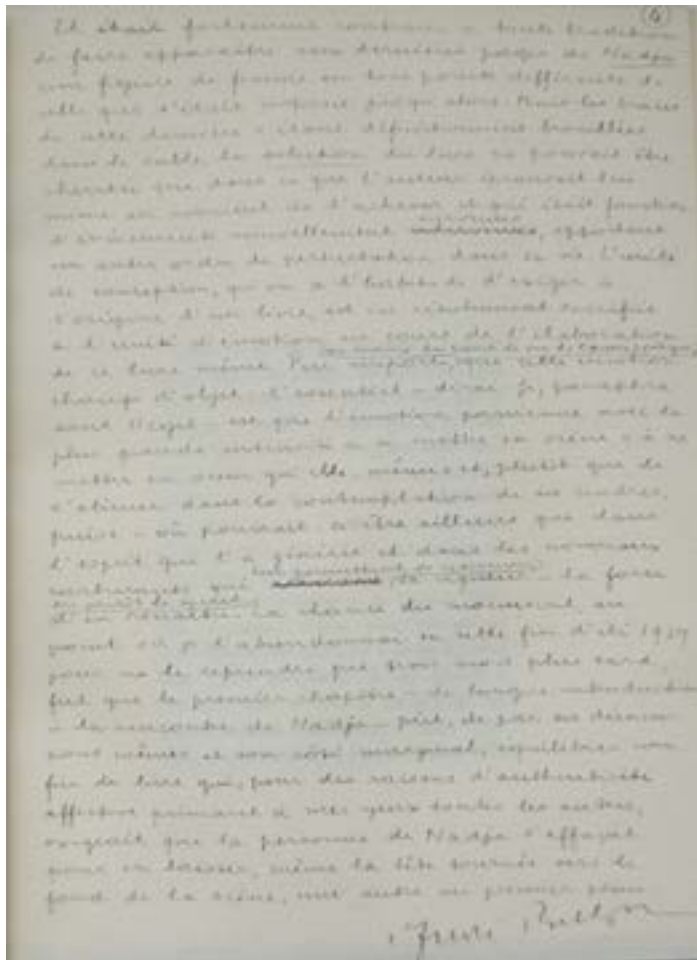 (4)
Il était fortement contraire à toute tradition
de faire apparaître aux dernières pages de Nadja
une figure de femme en tous points différente de
celle qui s'était imposée jusqu'alors. Mais les traces
de cette dernière s'étant définitivement brouillées
dans le sable la solution du livre ne pouvait être
cherchée que dans ce que l'auteur éprouvait lui
même au moment de l'achever et qui était fonction
d'événements nouvellement survenus, apportant
un autre ordre de perturbation dans sa vie. L'unité
de conception, qu'on a l'habitude d'exiger à
l'origine d'un livre, est ici sacrifiée
à l'unité d'émotion au cours de l'élaboration
de ce livre même. Peu importe, que cette émotion
change d'objet : l'essentiel – dirai-je,
– est que l'émotion parvienne avec la
plus grande intensité à se mettre en scène, à se
mettre en qu'elle-même et, plutôt que de
s'aliéner dans la contemplation de ses cendres,
puise – où pourrait-ce être ailleurs que dans
l'esprit qui l'a générée et dans les nouveaux
qui la force
d'en renaître. La chance du mouvement, au
point où je l'abandonnai en cette fin d'été 1927
pour ne le reprendre que trois mois plus tard,
fut que le premier chapitre – de longue introduction
à la rencontre de Nadja – pût, de par sa
même et son côté marginal, équilibrer une
fin de livre qui, pour des raisons d'authenticité
affective primant à mes yeux toutes les autres,
exigeait que la personne de Nadja s'effaçât
pour en laisser, même la tête tournée vers le
fond de la scène, une autre au premier plan
André Breton